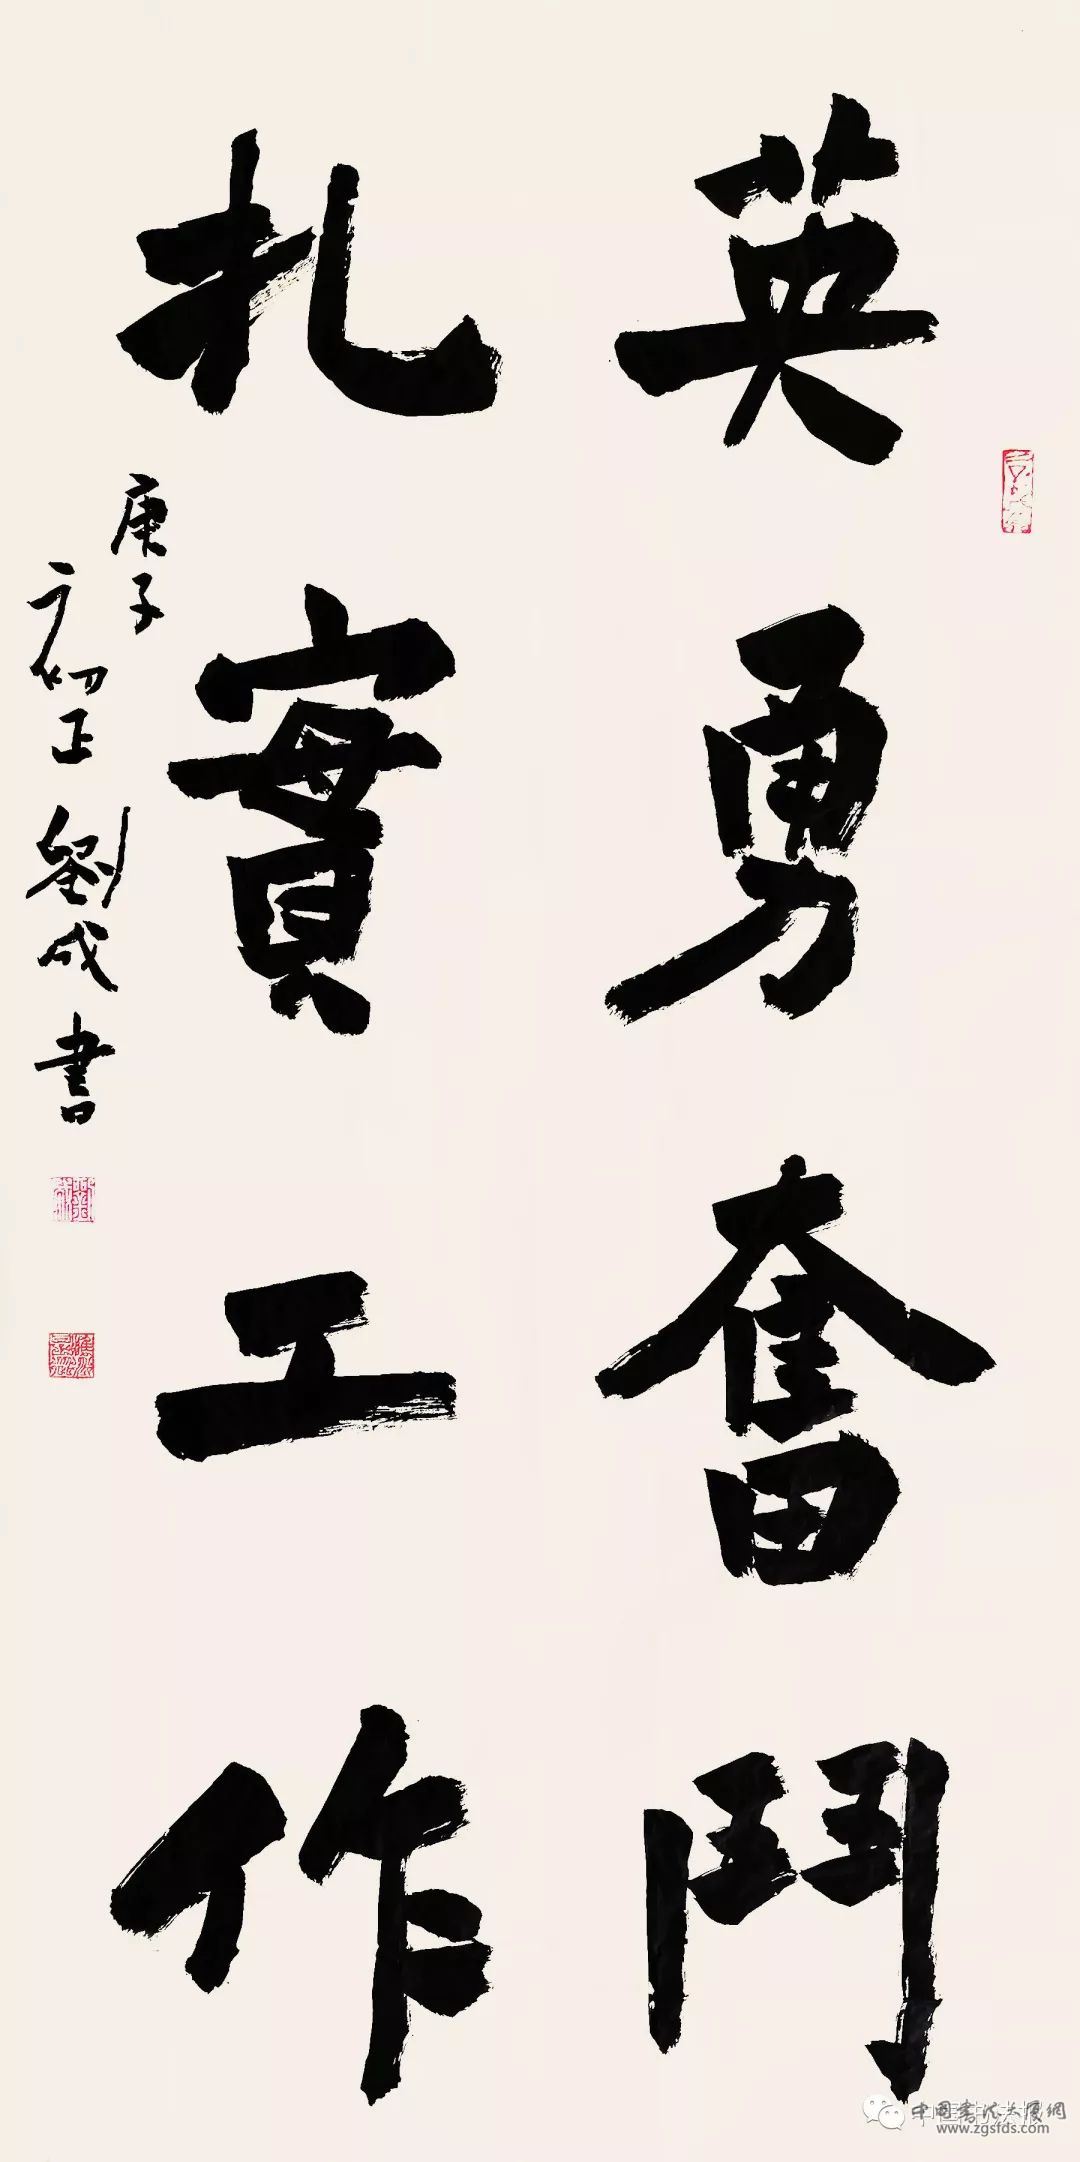 英勇奮鬥
扎實工作
庚子
方初正劉成書
中国書法大厦網
www.zgsfds.com